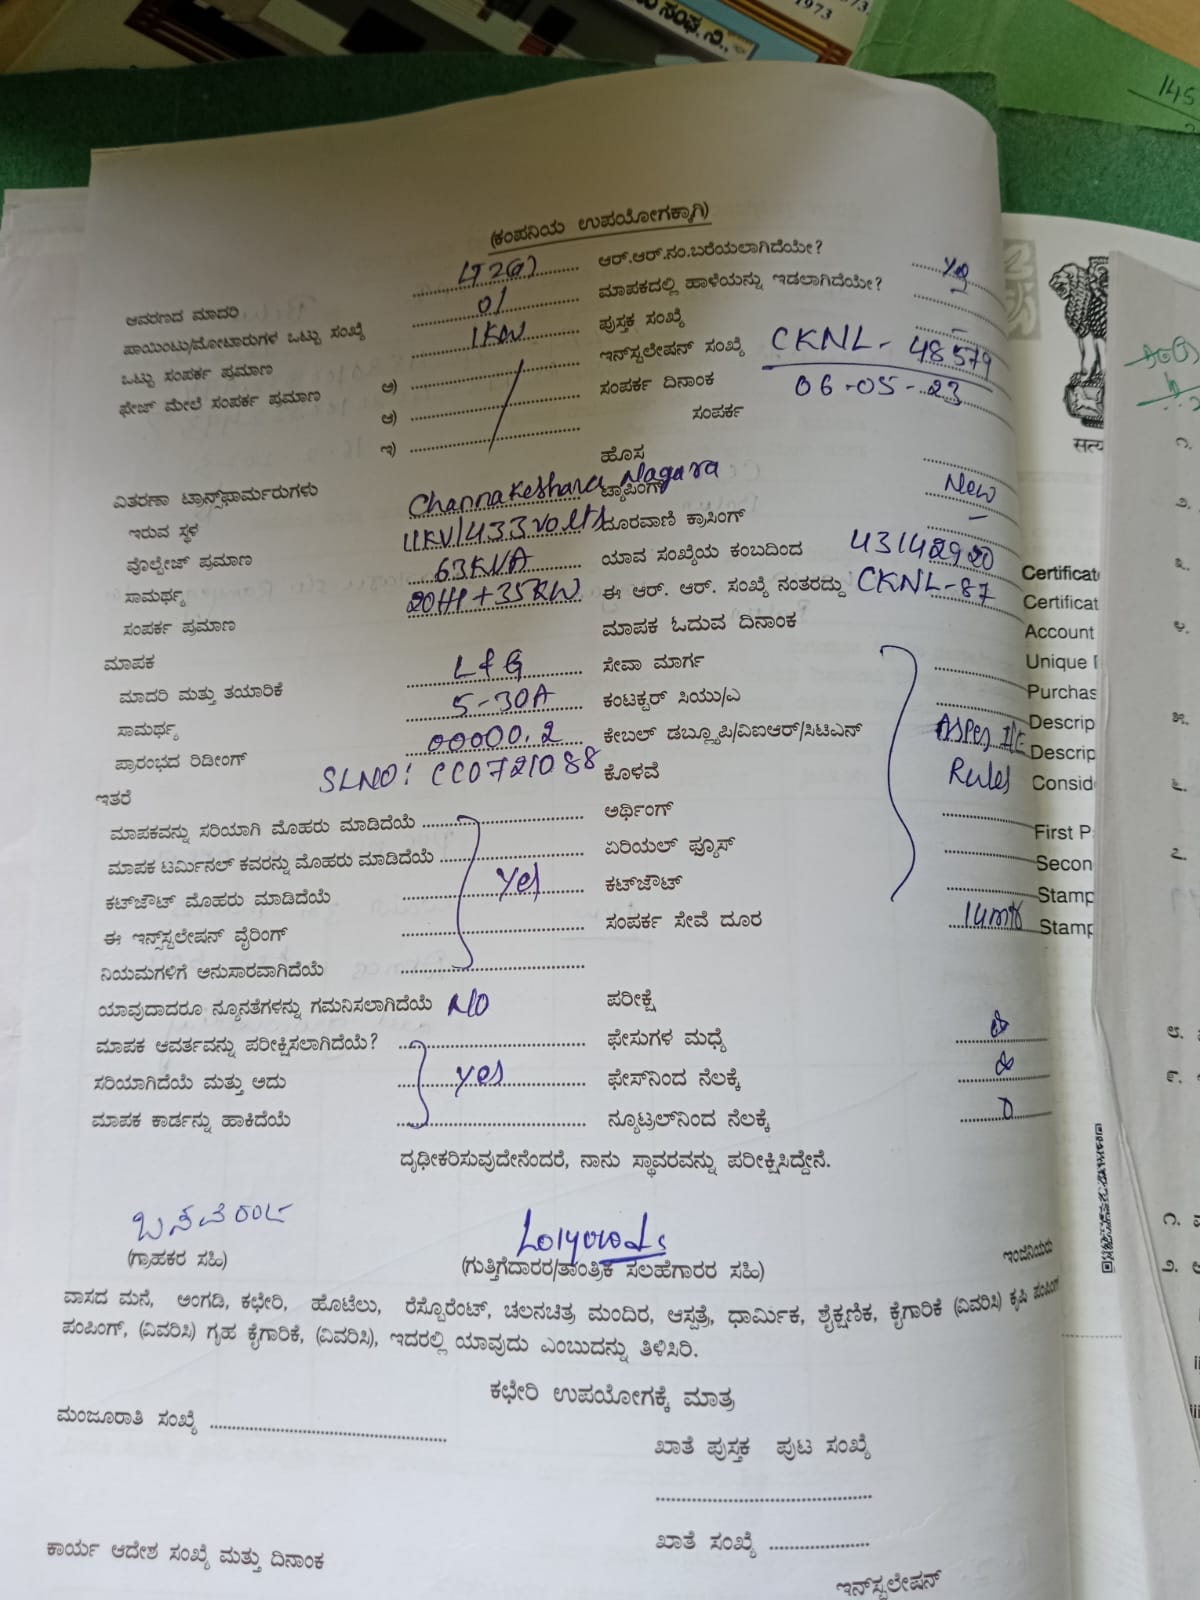 1973
ಸಂಘ. ನಿ.,
145
(ಕಂಪನಿಯ ಉಪಯೋಗಕ್ಕಾಗಿ)
ಆವರಣದ ಮಾದರಿ
ಆರ್.ಆರ್.ನಂ.ಬರೆಯಲಾಗಿದೆಯೇ? yes
ಪಾಯಿಂಟು/ಮೋಟಾರುಗಳ ಒಟ್ಟು ಸಂಖ್ಯೆ 01
ಮಾಪಕದಲ್ಲಿ ಹಾಳೆಯನ್ನು ಇಡಲಾಗಿದೆಯೇ?
ಒಟ್ಟು ಸಂಪರ್ಕ ಪ್ರಮಾಣ 1KW
ಪುಸ್ತಕ ಸಂಖ್ಯೆ
ಫೇಜ್ ಮೇಲೆ ಸಂಪರ್ಕ ಪ್ರಮಾಣ ಅ)
ಇನ್‌ಸ್ಟಲೇಷನ್ ಸಂಖ್ಯೆ CKNL- 48579
ಆ)
ಸಂಪರ್ಕ ದಿನಾಂಕ 06-05-23
ಇ)
ಸಂಪರ್ಕ
ವಿತರಣಾ ಟ್ರಾನ್ಸ್‌ಫಾರ್ಮರುಗಳು
ಹೊಸ New
ಇರುವ ಸ್ಥಳ Channakeshava Nagara
ಟ್ಯಾಪಿಂಗ್
ವೊಲ್ಟೇಜ್ ಪ್ರಮಾಣ 11KV/433volts
ದೂರವಾಣಿ ಕ್ರಾಸಿಂಗ್
ಸಾಮರ್ಥ್ಯ 63KVA
ಯಾವ ಸಂಖ್ಯೆಯ ಕಂಬದಿಂದ 43142920
ಸಂಪರ್ಕ ಪ್ರಮಾಣ 20HP+35KW
ಈ ಆರ್. ಆರ್. ಸಂಖ್ಯೆ ನಂತರದ್ದು CKNL-87
ಮಾಪಕ
ಮಾಪಕ ಓದುವ ದಿನಾಂಕ
ಮಾದರಿ ಮತ್ತು ತಯಾರಿಕೆ L&G
ಸೇವಾ ಮಾರ್ಗ
ಸಾಮರ್ಥ್ಯ 5-30A
ಕಂಟಕ್ಟರ್ ಸಿಯು/ಎ
ಪ್ರಾರಂಭದ ರಿಡೀಂಗ್ 00000.2
ಕೇಬಲ್ ಡಬ್ಲ್ಯೂಪಿ/ವಿಐಆರ್/ಸಿಟಿಎನ್
ಇತರೆ SLNO: CC0721088
ಕೊಳವೆ Rules
ಮಾಪಕವನ್ನು ಸರಿಯಾಗಿ ಮೊಹರು ಮಾಡಿದೆಯೆ
ಅರ್ಥಿಂಗ್
ಮಾಪಕ ಟರ್ಮಿನಲ್ ಕವರನ್ನು ಮೊಹರು ಮಾಡಿದೆಯೆ
ಏರಿಯಲ್ ಫ್ಯೂಸ್
ಕಟ್‌ಔಟ್ ಮೊಹರು ಮಾಡಿದೆಯೆ yes
ಕಟ್‌ಔಟ್
ಈ ಇನ್ಸ್‌ಸ್ಟಲೇಷನ್ ವೈರಿಂಗ್
ಸಂಪರ್ಕ ಸೇವೆ ದೂರ
ನಿಯಮಗಳಿಗೆ ಅನುಸಾರವಾಗಿದೆಯೆ
ಯಾವುದಾದರೂ ನ್ಯೂನತೆಗಳನ್ನು ಗಮನಿಸಲಾಗಿದೆಯೆ NO
ಪರೀಕ್ಷೆ
ಮಾಪಕ ಆವರ್ತವನ್ನು ಪರೀಕ್ಷಿಸಲಾಗಿದೆಯೆ?
ಫೇಸುಗಳ ಮಧ್ಯೆ
ಸರಿಯಾಗಿದೆಯೆ ಮತ್ತು ಅದು yes
ಫೇಸ್‌ನಿಂದ ನೆಲಕ್ಕೆ
ಮಾಪಕ ಕಾರ್ಡನ್ನು ಹಾಕಿದೆಯೆ
ನ್ಯೂಟ್ರಲ್‌ನಿಂದ ನೆಲಕ್ಕೆ
ದೃಢೀಕರಿಸುವುದೇನೆಂದರೆ, ನಾನು ಸ್ಥಾವರವನ್ನು ಪರೀಕ್ಷಿಸಿದ್ದೇನೆ.
(ಗ್ರಾಹಕರ ಸಹಿ)
(ಗುತ್ತಿಗೆದಾರರ/ತಾಂತ್ರಿಕ ಸಲಹೆಗಾರರ ಸಹಿ)
ಇಂಜಿನಿಯರು
ವಾಸದ ಮನೆ, ಅಂಗಡಿ, ಕಛೇರಿ, ಹೊಟೆಲು, ರೆಸ್ಟೊರೆಂಟ್, ಚಲನಚಿತ್ರ ಮಂದಿರ, ಆಸ್ಪತ್ರೆ, ಧಾರ್ಮಿಕ, ಶೈಕ್ಷಣಿಕ, ಕೈಗಾರಿಕೆ (ವಿವರಿಸಿ) ಕೃಷಿ ಪಂಪಿಂಗ್
ಪಂಪಿಂಗ್, (ವಿವರಿಸಿ) ಗೃಹ ಕೈಗಾರಿಕೆ, (ವಿವರಿಸಿ), ಇದರಲ್ಲಿ ಯಾವುದು ಎಂಬುದನ್ನು ತಿಳಿಸಿರಿ.
ಕಛೇರಿ ಉಪಯೋಗಕ್ಕೆ ಮಾತ್ರ
ಮಂಜೂರಾತಿ ಸಂಖ್ಯೆ
ಖಾತೆ ಪುಸ್ತಕ ಪುಟ ಸಂಖ್ಯೆ
ಖಾತೆ ಸಂಖ್ಯೆ
ಕಾರ್ಯ ಆದೇಶ ಸಂಖ್ಯೆ ಮತ್ತು ದಿನಾಂಕ
ಇನ್‌ಸ್ಟಲೇಷನ್
सत्य
Certificat
Certificat
Account
Unique
Purchas
Descrip
Descrip
Consid
First P
Secon
Stamp
Stamp